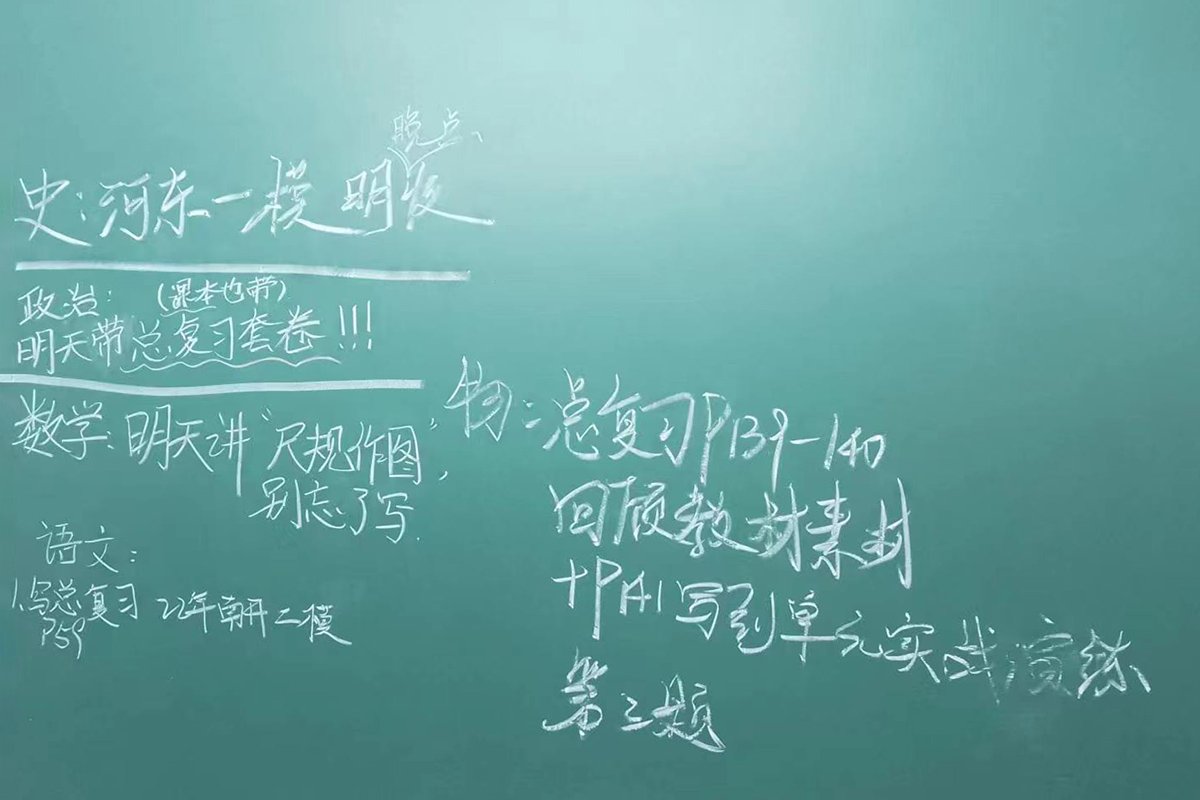 晚点、
史:河东一模 明收
政治: (课本也带)
明天带总复习套卷!!!
数学:明天讲“尺规作图”,
别忘了写.
语文:
1.写总复习 22年南开二模
P59
物:总复习P139-140
回顾教材素材
+P141写到单元实战演练
第三题